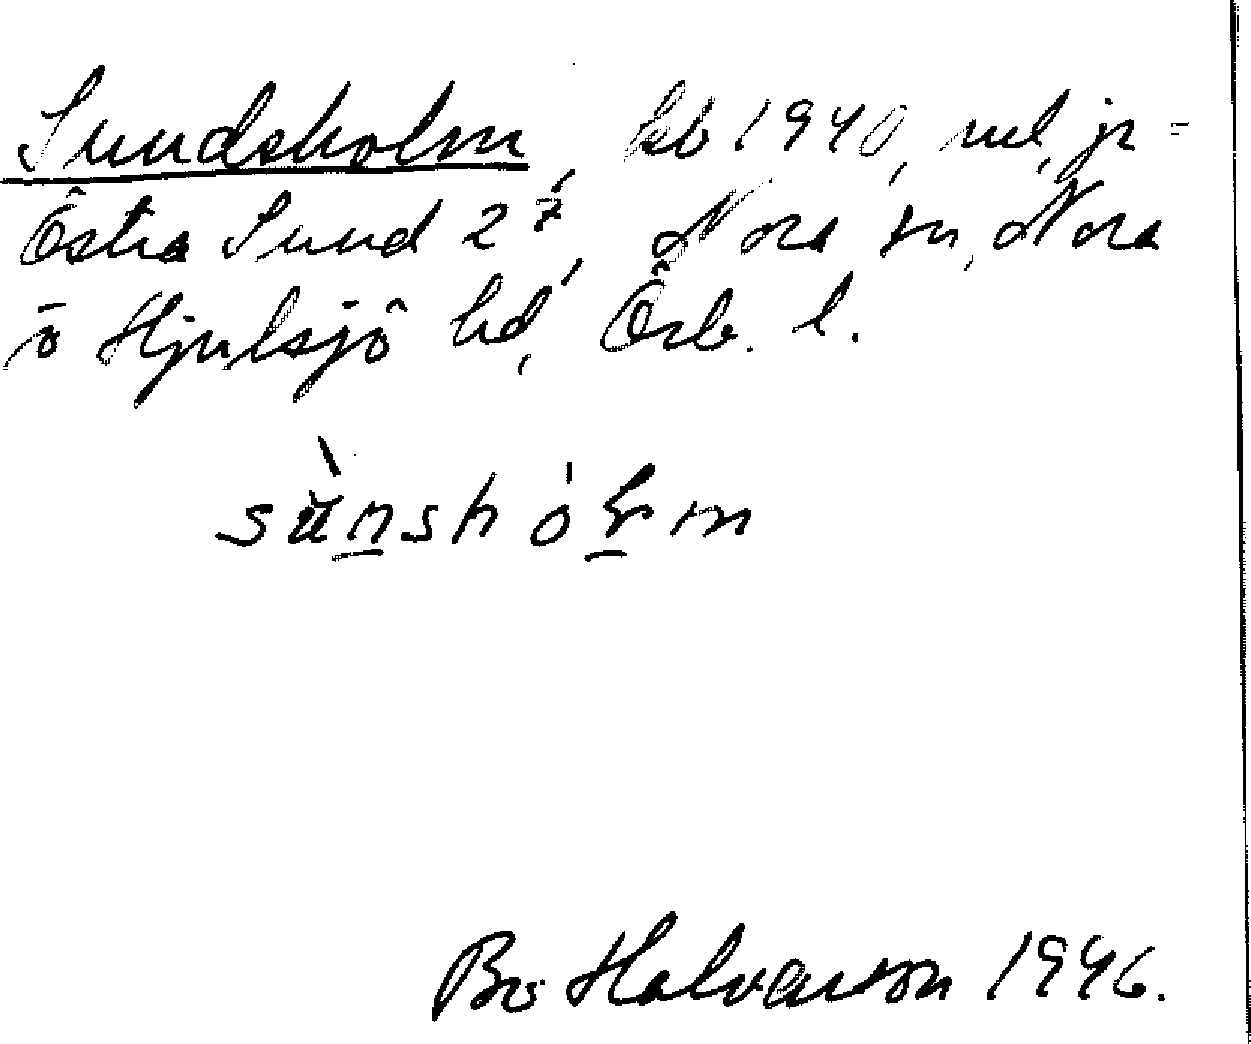 Sundsholm, kb 1940, ml, jr =
Östra Sund 2⁷, Nora sn, Nora
o Hjulsjö hd, Örb. l.
sùnshólm
Bo Halvarson 1946.